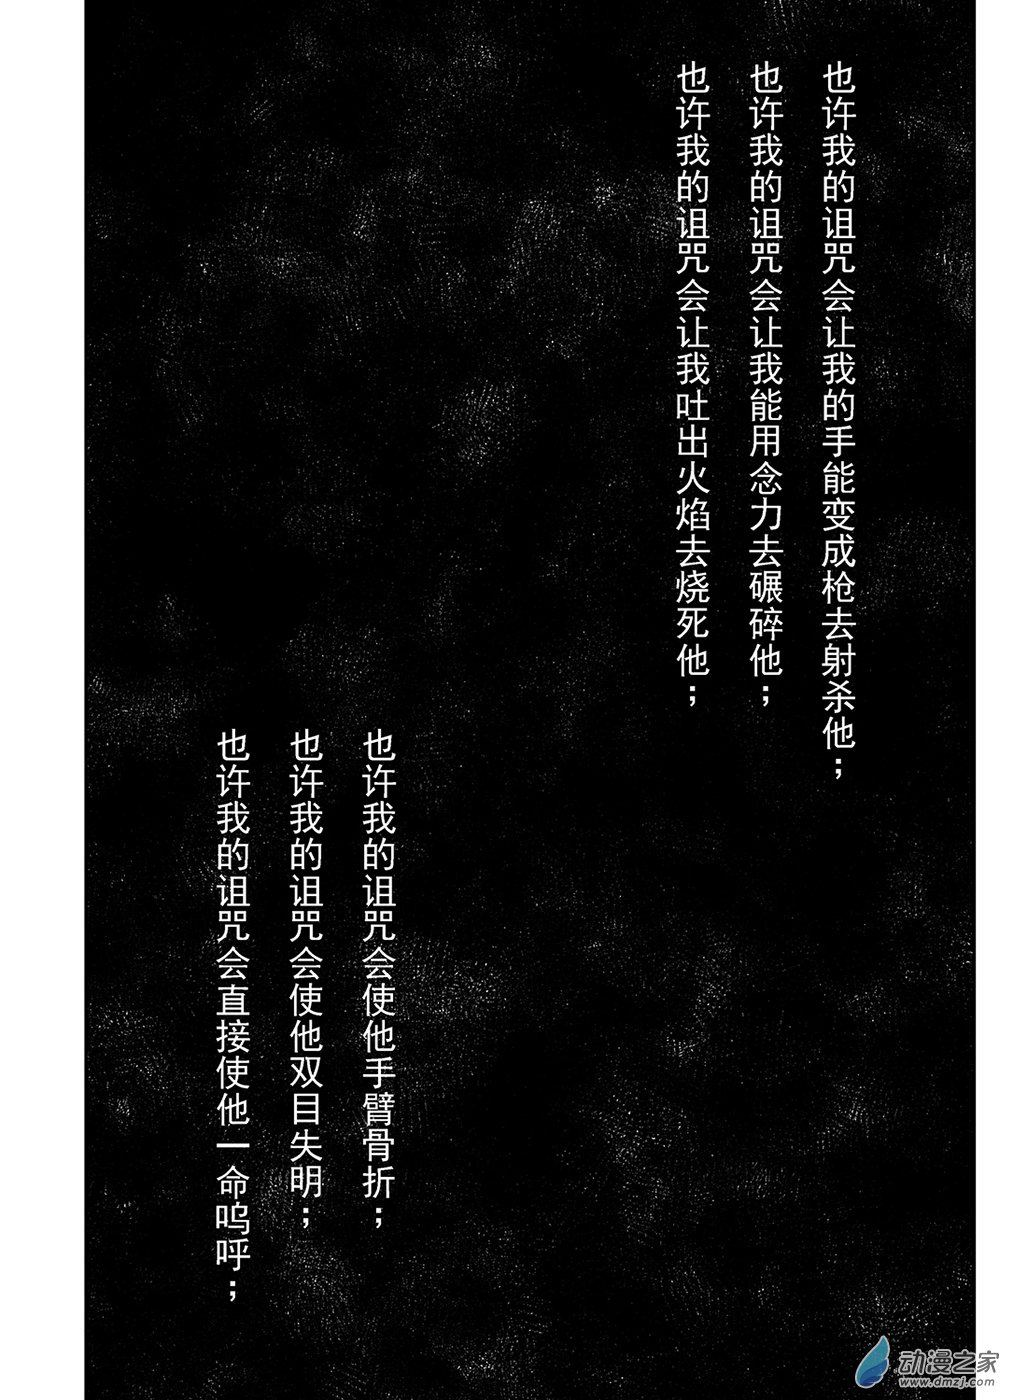 也许我的诅咒会让我的手能变成枪去射杀他；
也许我的诅咒会让我能用念力去碾碎他；
也许我的诅咒会让我吐出火焰去烧死他；
也许我的诅咒会使他手臂骨折；
也许我的诅咒会使他双目失明；
也许我的诅咒会直接使他一命呜呼；
动漫之家
www.dmzj.com